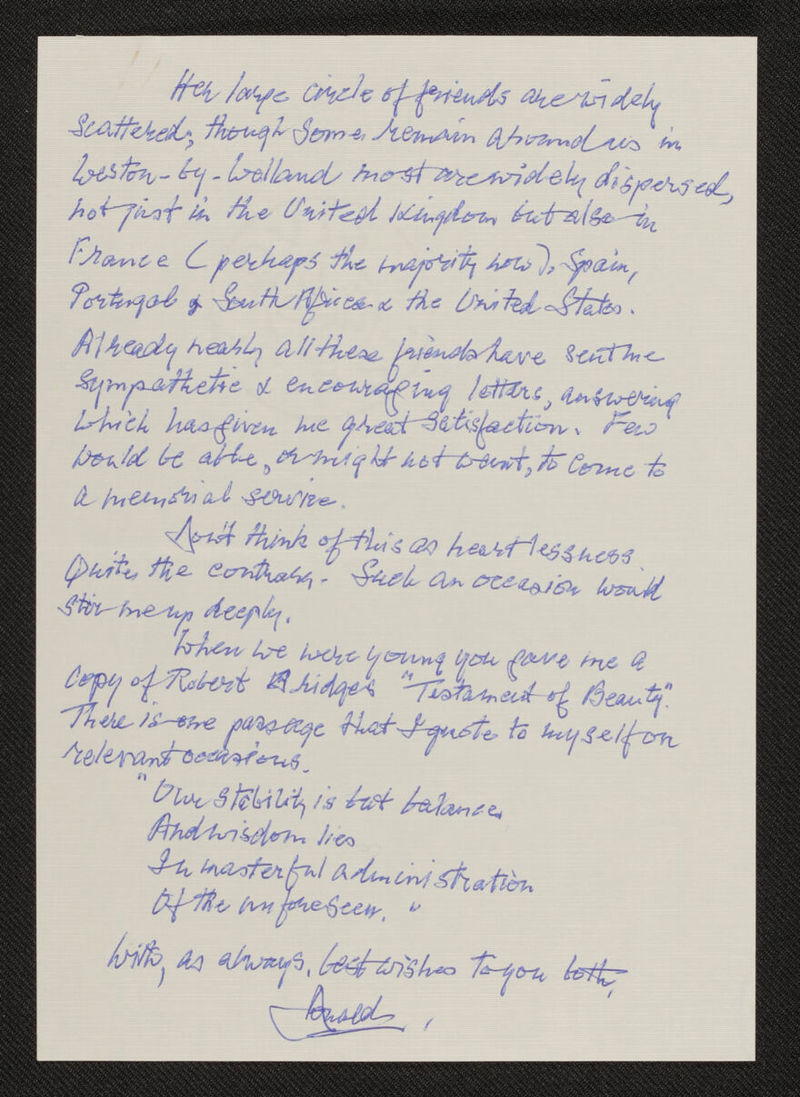 Her large circle of friends are widely
scattered; though some remain around us in
Weston-by-Welland most are widely dispersed,
not just in the United Kingdom but also in
France (perhaps the majority now), Spain,
Portugal & South Africa & the United States.
Already nearly all these friends have sent me
sympathetic & encouraging letters, answering
which has given me great satisfaction. Few
would be able, or might not want, to come to
a memorial service.
Don't think of this as heartlessness.
Quite the contrary. Such an occasion would
stir me up deeply.
When we were young you gave me a
copy of Robert Bridges "Testament of Beauty".
There is one passage that I quote to myself on
relevant occasions.
"Our stability is but balance,
And wisdom lies
In masterful administration
Of the unforeseen."
With, as always, best wishes to you both,
Donald,